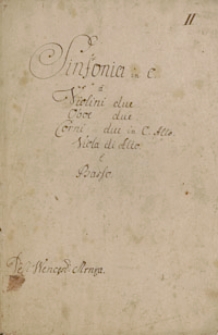 II
Sinfonia in C
a
Violini due
Oboe due
Corni due in C. Alto
Viola di Alto
è
Basso
Del Wencesl: